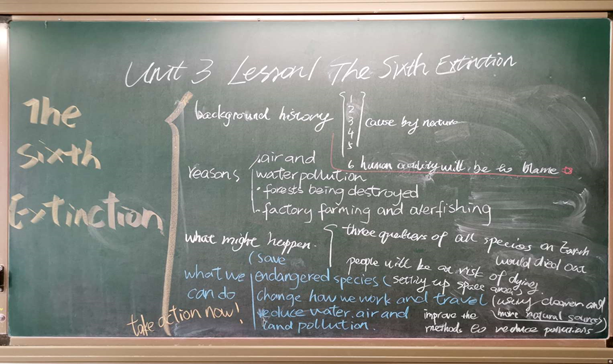 Unit 3 Lesson1 The Sixth Extinction
The
Sixth
Extinction
background history
1
2
3
4
5
cause by nature
6. human acidity will be to blame
reasons
air and
water pollution
forests being destroyed
factory farming and overfishing
what might happen
three quarters of all species on Earth
would died out
people will be at risk of dying
what we
can do
save
endangered species (setting up space areas)
change how we work and travel (using cleaner and
more natural sources)
reduce water, air and
land pollution.
improve the
methods to reduce pollutions
take action now!